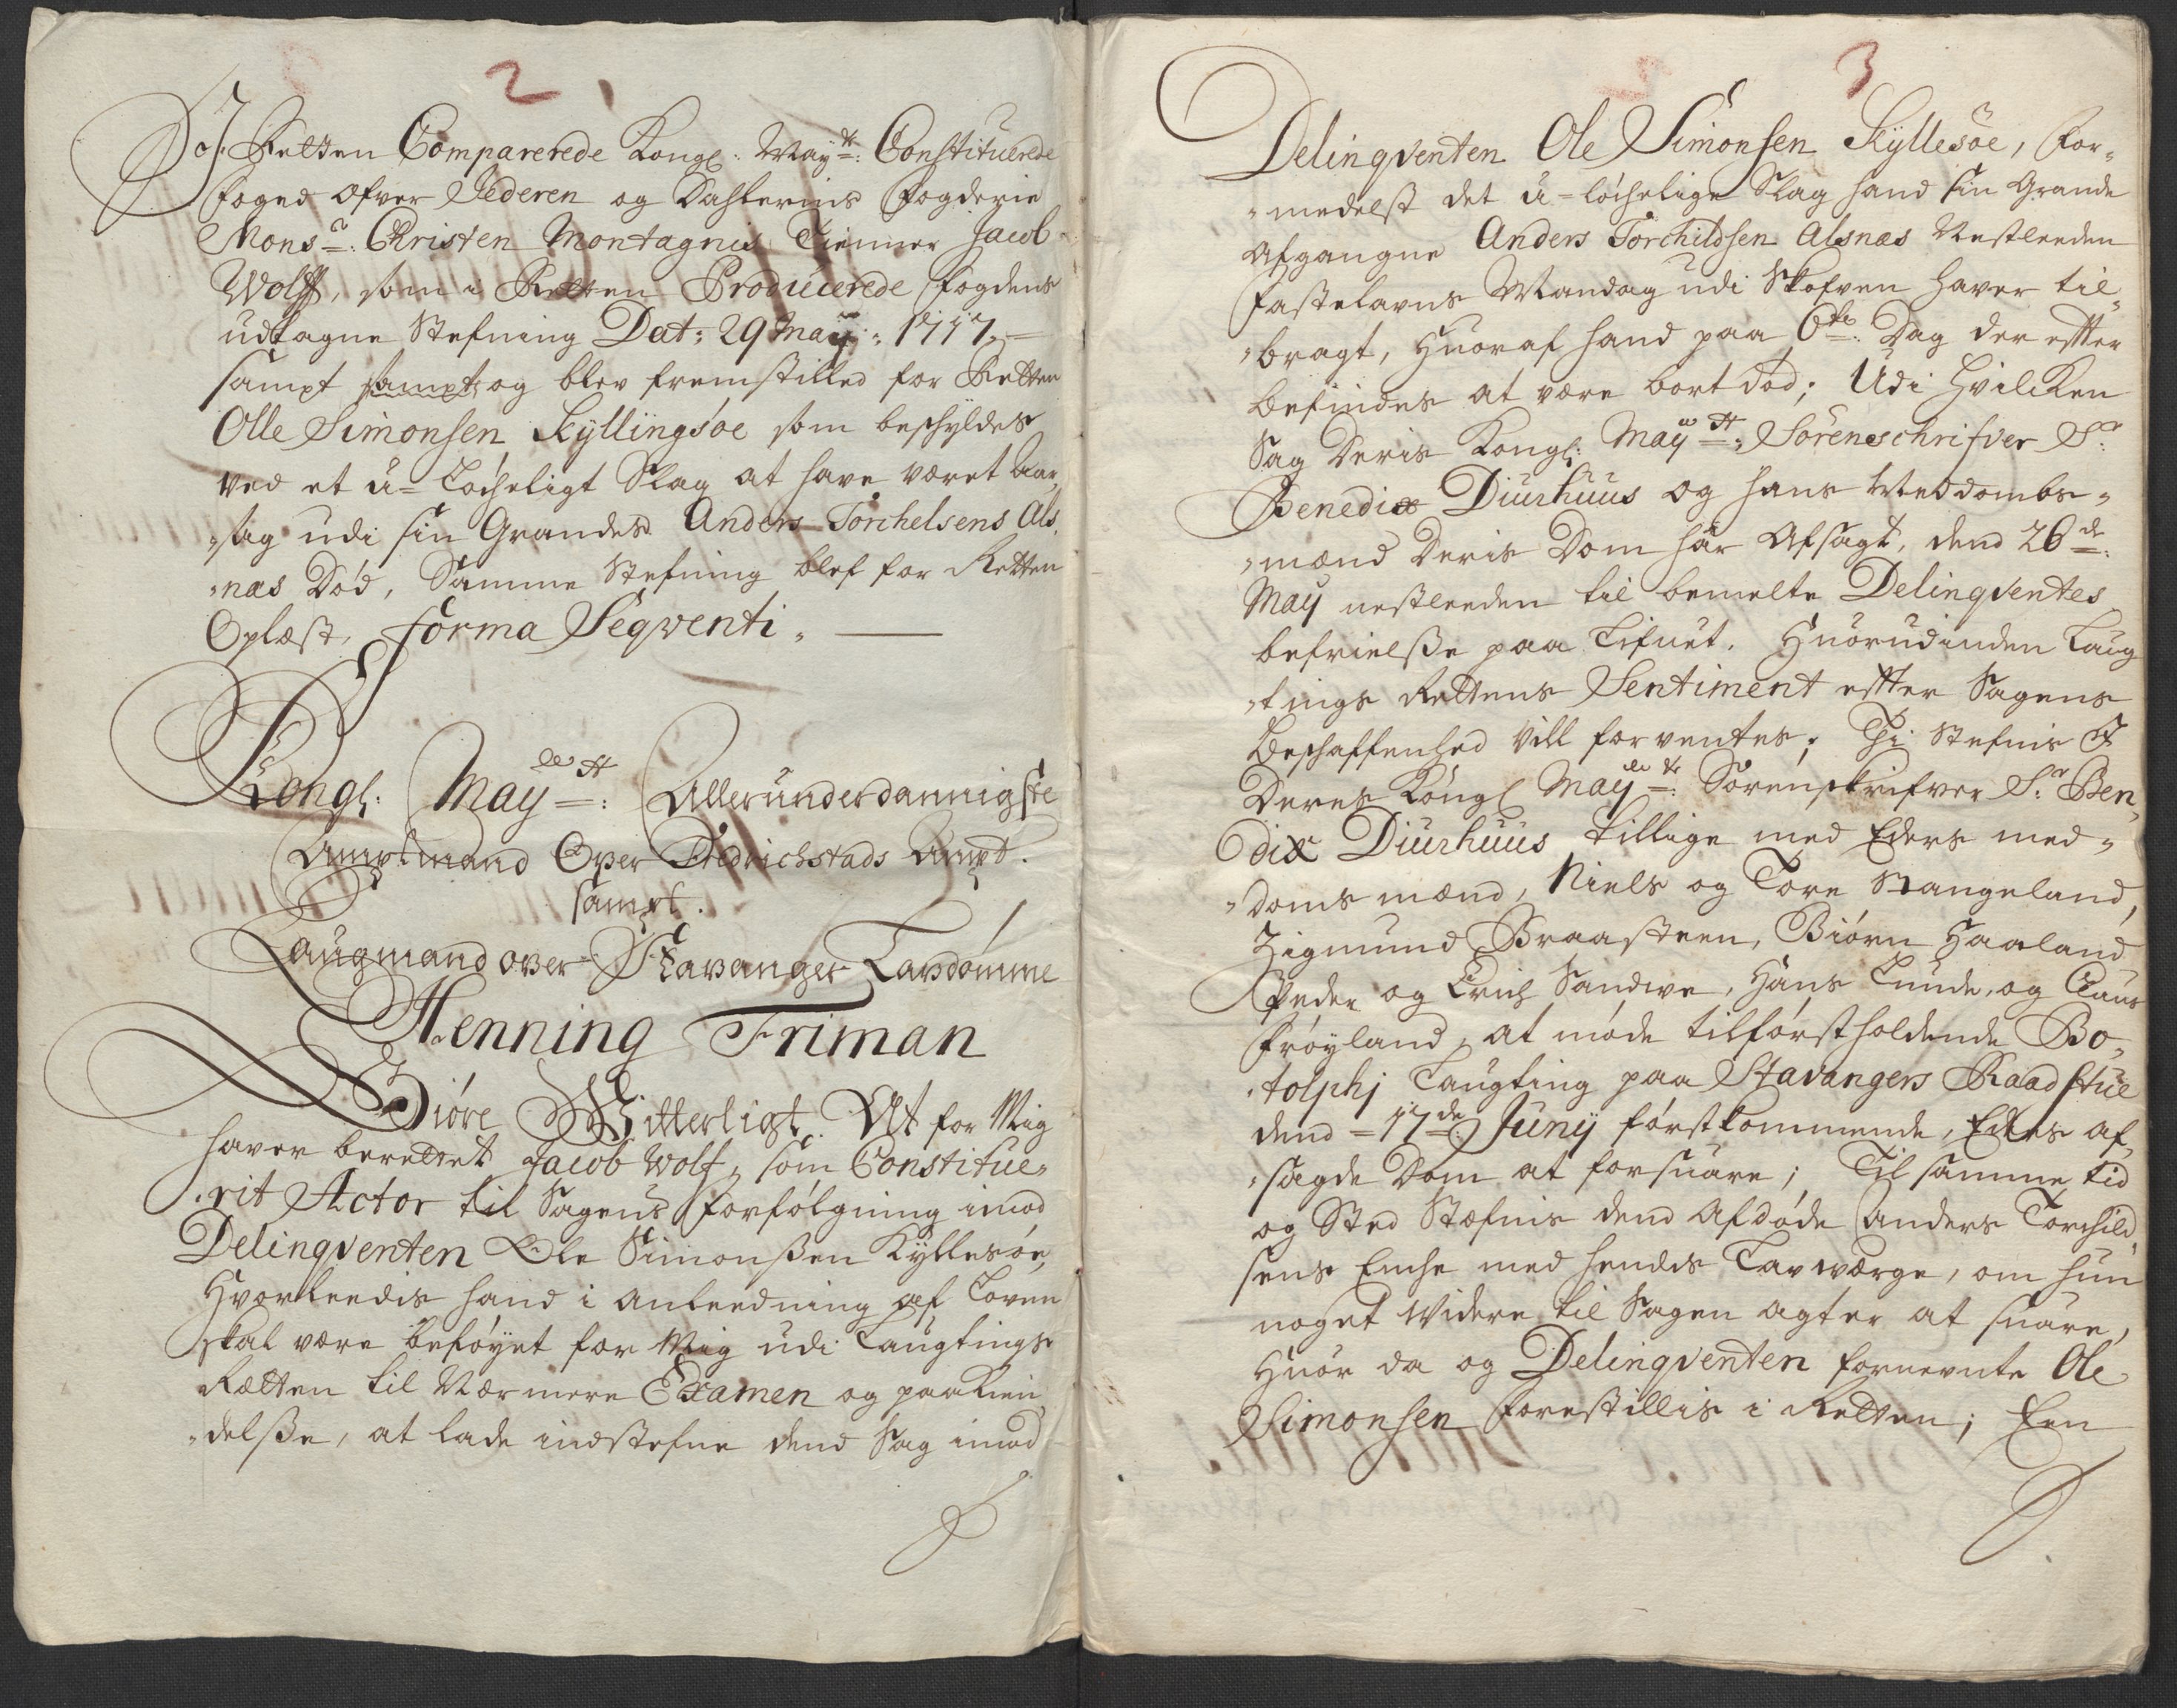 2
J Retten Comparerede Kongl: May:tt: Constituerede
Foged ofver Jederen og Dahlernis Fogderie
Mons:r: Christen Montagnes Tienner Jacob
Wolff, som i Retten Producerede Fogdens
udtagne Stefning Dat: 29 May: 1717, —
sampt sampt og blev fremstilled for Retten
Olle Simonsen Kyllingsøe som beskyldes
ved et u-Løcheligt Slag at have været Aar„
„sag udi sin Grandes Anders Torchelsens Als„
„næs Død, Samme Stefning blef for Retten
Oplæst, Forma Seqventi. —
Kongl: May:tt: Allerunderdannigste
Amptmand Over Fridrichstads Ampt.
sampt.
Laugmand over Stavanger Lavdømme
Henning Friman
Giøre Witterligt. At for Mig
haver berettet Jacob Wolf, som Constitue„
„rit Actor til Sagens Forfølgning imod
Delinqventen Ole Simonßen Kyllesøe,
Hvorleedis hand i Anleedning af Loven
skal være beføyet for Mig udi Laugtings
Retten til Nærmere Examen og paakien„
„delße, at lade indstefne dend Sag imod
3
Delinqventen Ole Simonsen Kyllesøe, For„
„medelst det u-løchelige Slag hand sin Grande
Afgangne Anders Torchildsen Alsnæs Nestleeden
Fastelavns Mandag udi Skofven haver til„
„bragt, Huoraf hand paa 6te: Dag der effter
befindes at være bort død; Udi Hvilcken
Sag Deris Kongl: May:tt: Sørenschrifver Sr:
Benedix Diurhuus og hans Meddombs„
„mænd Deris Dom har Afsagt, dend 26de:
May nestleeden til bemelte Delinqventes
befrielße paa Lifuet. Huorudinden Laug
„tings Rettens Sentiment effter Sagens
Beskaffenhed vill forventes; Thi Stefnis I
Deres Kongl May:tt: Sørenskrifver Sr: Ben„
dix Diurhuus tillige med Eders med„
„doms mænd, Niels og Tore Stangeland,
Zigmund Braasteen, Biørn Haaland
Peder og Erich Sandwe, Hans Lunde, og Claus
Frøyland, at møde tilførstholdende Bo„
„tolphj Laugting paa Stavangers Raadstue
dend 17de: Junij førstkommende, Eders af„
„sagde Dom at forsuare; Til samme tid
og Sted Stefnis dend Afdøde Anders Torchild„
sens Enche med hendis Lavværge, om hun
noget Widere til Sagen agter at suare,
Huor da og Delinqventen fornevnte Ole
Simonsen forestillis i Retten; Een